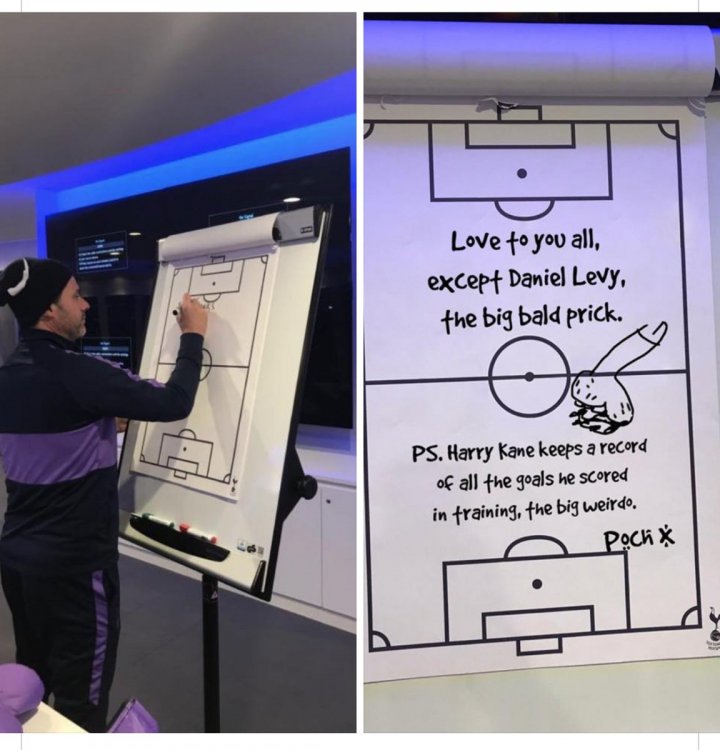 Love to you all,
except Daniel Levy,
the big bald prick.
PS. Harry Kane keeps a record
of all the goals he scored
in training, the big weirdo.
Poch x